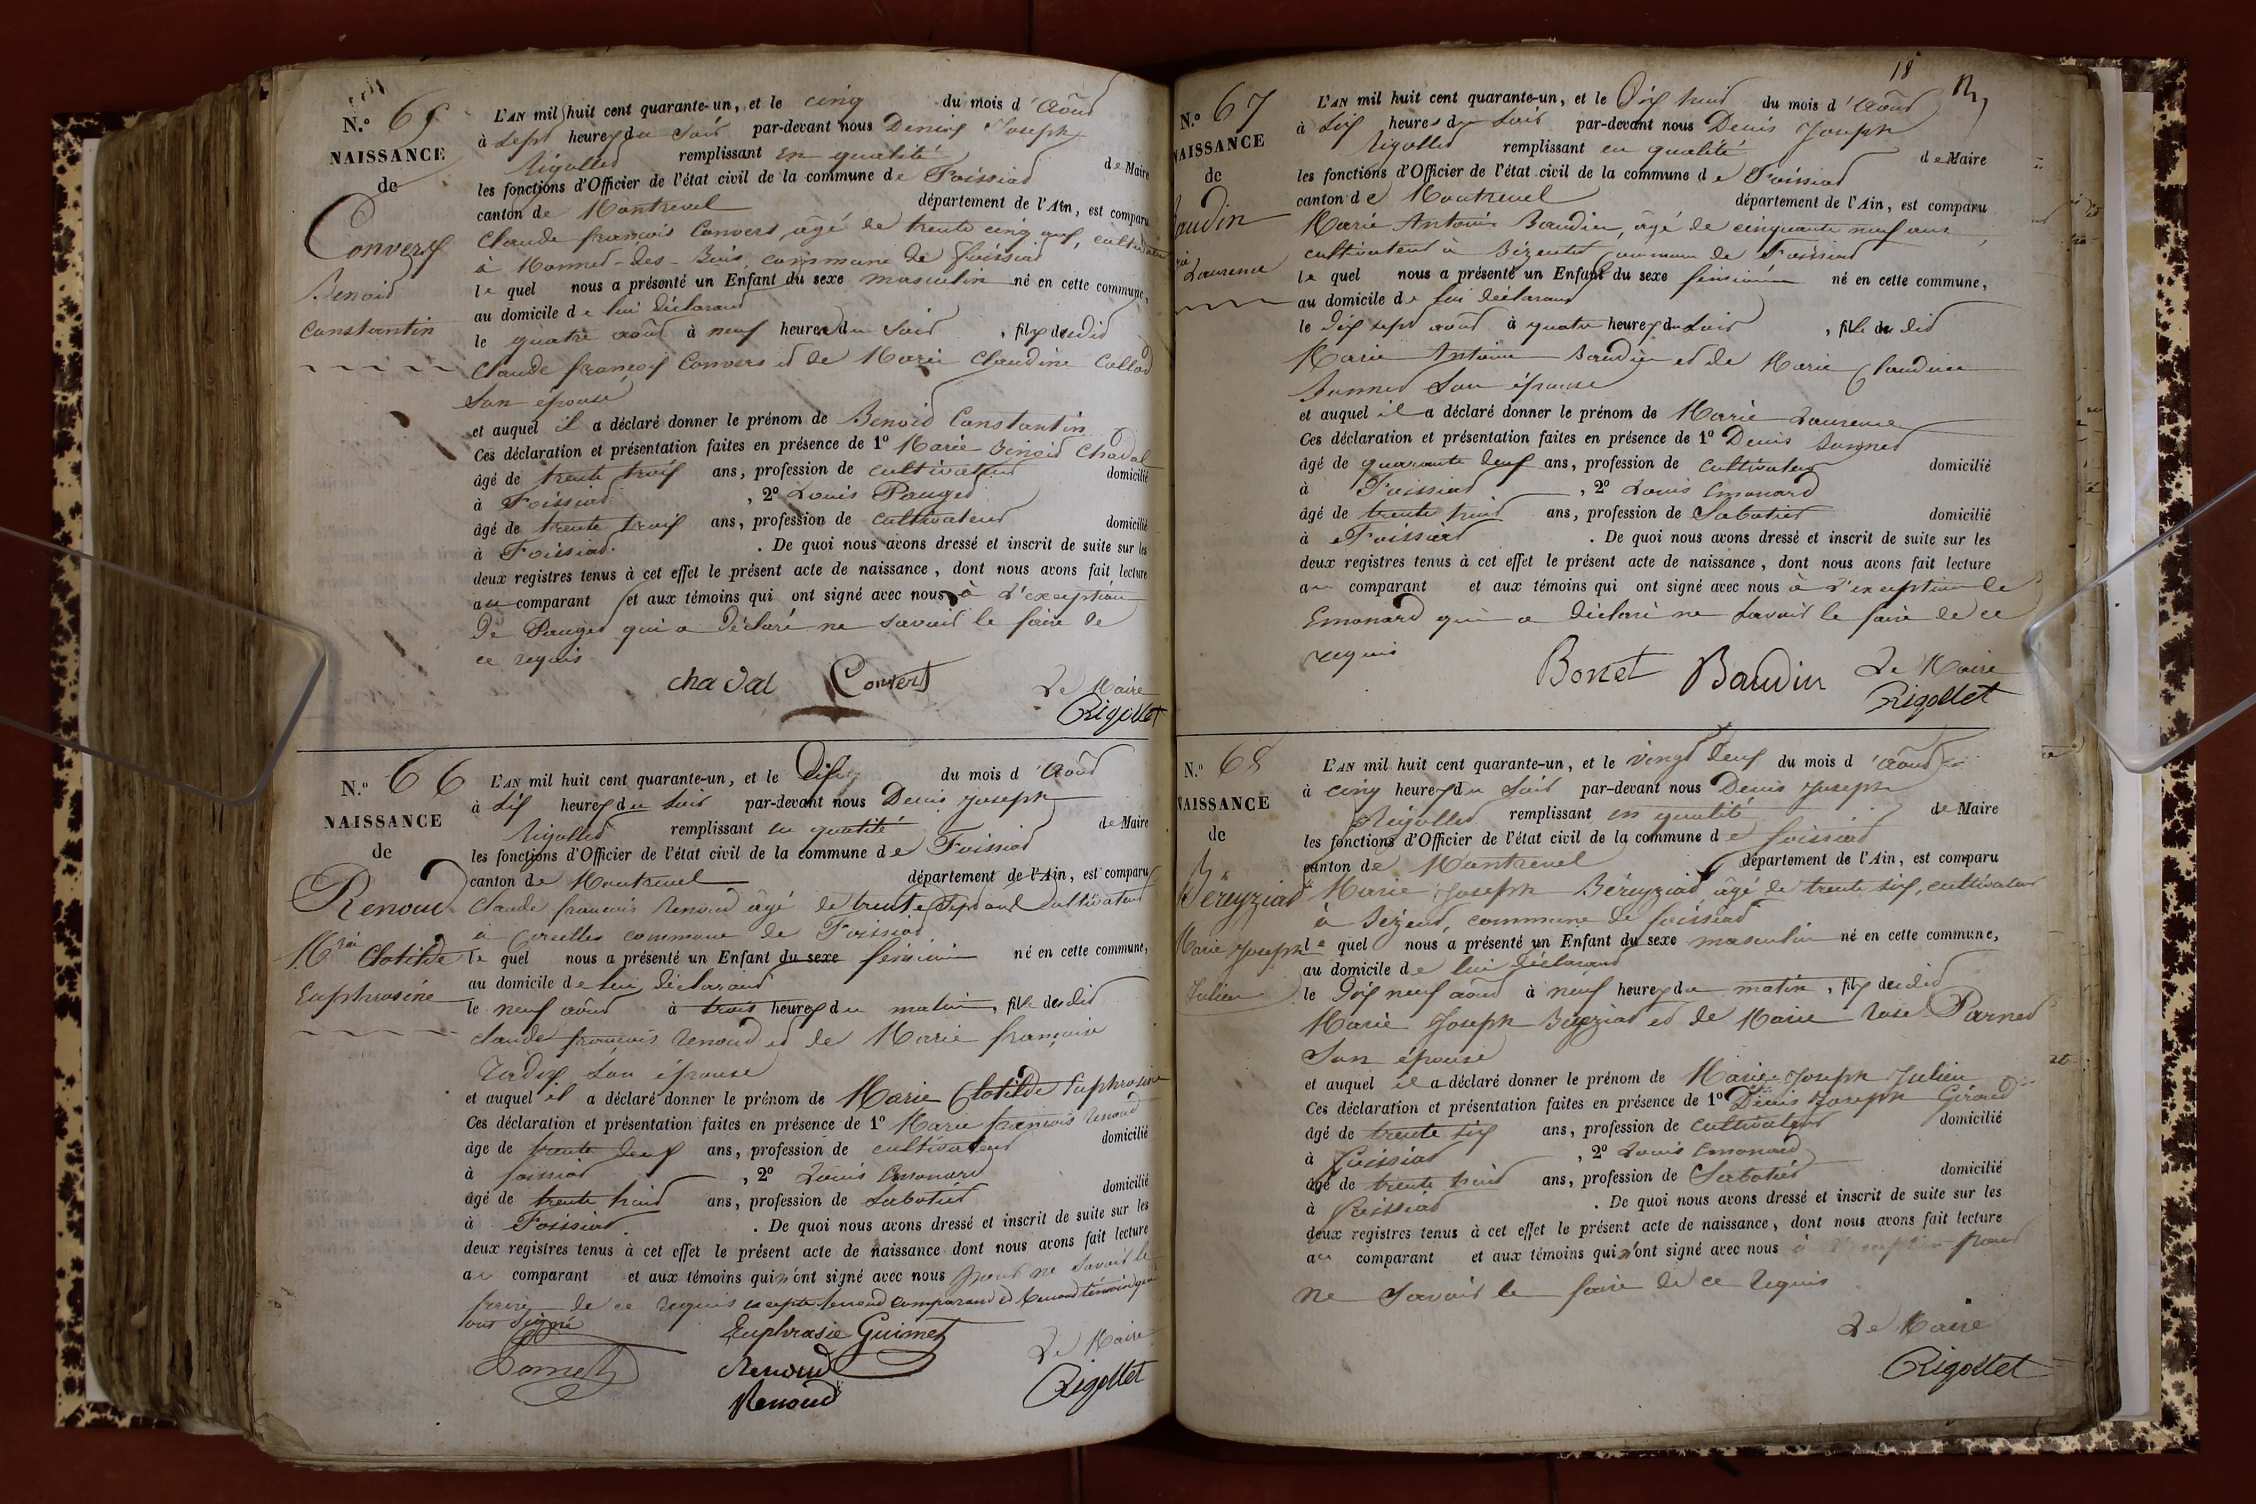 N.º 65
NAISSANCE
de
Convers
Benoid
Constantin
L'AN mil huit cent quarante-un, et le cinq du mois d'Aôud
à sept heures du soir par-devant nous Denis Joseph
Rigolled remplissant en qualité de Maire
les fonctions d'Officier de l'état civil de la commune de Foissiad
canton de Montrevel département de l'Ain, est comparu
Claude françois Convers, âgé de trente cinq ans, cultivateur
à Monned-des-Bois commune de foissiad
le quel nous a présenté un Enfant du sexe masculin né en cette commune,
au domicile de lui déclarand
le quatre août à neuf heures du soir, fils dudid
Claude françois Convers et de Marie Claudine Collod
son épouse
et auquel il a déclaré donner le prénom de Benoid Constantin
Ces déclaration et présentation faites en présence de 1º Marie Benoid Chadal
âgé de trente trois ans, profession de cultivateur domicilié
à Foissiad, 2º Louis Pauged
âgé de trente trois ans, profession de cultivateur domicilié
à Foissiad. De quoi nous avons dressé et inscrit de suite sur les
deux registres tenus à cet effet le présent acte de naissance, dont nous avons fait lecture
au comparant et aux témoins qui ont signé avec nous à l'exception
de Pauged qui a déclaré ne savoir le faire de
ce requis
chadal Convers Le Maire
Rigollet
N.º 66
NAISSANCE
de
Renoud
M.rie Clotilde
Euphrosine
L'AN mil huit cent quarante-un, et le Dix du mois d'Aôud
à six heures du soir par-devant nous Denis Joseph
Rigolled remplissant en qualité de Maire
les fonctions d'Officier de l'état civil de la commune de Foissiad
canton de Montrevel département de l'Ain, est comparu
Claude françois Renoud âgé de trente sept ans Cultivateur
à Corcelles commune de Foissiad
le quel nous a présenté un Enfant du sexe féminin né en cette commune,
au domicile de lui déclarand
le neuf août à trois heures du matin, fille dudid
claude françois Renoud et de Marie françoise
son épouse
et auquel il a déclaré donner le prénom de Marie Clotilde Euphrosine
Ces déclaration et présentation faites en présence de 1º Marie françois Renoud
âgé de trente deux ans, profession de cultivateur domicilié
à foissiad, 2º Louis Emonard
âgé de trente huid ans, profession de Sabotier domicilié
à Foissiad. De quoi nous avons dressé et inscrit de suite sur les
deux registres tenus à cet effet le présent acte de naissance dont nous avons fait lecture
au comparant et aux témoins qui n'ont signé avec nous pour ne savoir le
faire de ce requis excepté Renoud comparand et Renoud témoin qui
ont signé
Euphrasie Guimet Le Maire
Renoud Rigollet
Renoud
18
N.º 67
NAISSANCE
de
Baudin
Laurence
L'AN mil huit cent quarante-un, et le Dix huid du mois d'Aôud
à six heures du soir par-devant nous Denis Joseph
Rigolled remplissant en qualité de Maire
les fonctions d'Officier de l'état civil de la commune de Foissiad
canton de Montrevel département de l'Ain, est comparu
Marie Antoine Baudin, âgé de cinquante neuf ans
cultivateur à Bézentet commune de Foissiad
le quel nous a présenté un Enfant du sexe féminin né en cette commune,
au domicile de lui déclarand
le dix sept août à quatre heures du soir, fille de did
Marie Antoine Baudin et de Marie Claudine
Bonned son épouse
et auquel il a déclaré donner le prénom de Marie Laurence
Ces déclaration et présentation faites en présence de 1º Denis Bonned
âgé de quarante deux ans, profession de cultivateur domicilié
à Foissiad, 2º Louis Emonard
âgé de trente huid ans, profession de Sabotier domicilié
à Foissiad. De quoi nous avons dressé et inscrit de suite sur les
deux registres tenus à cet effet le présent acte de naissance, dont nous avons fait lecture
au comparant et aux témoins qui ont signé avec nous à l'exception de
Emonard qui a déclaré ne savoir le faire de ce
requis
Bonet Baudin Le Maire
Rigollet
N.º 68
NAISSANCE
de
Béreyziad
Marie Joseph
Julien
L'AN mil huit cent quarante-un, et le vingt deux du mois d'Aôud
à cinq heures du soir par-devant nous Denis Joseph
Rigolled remplissant en qualité de Maire
les fonctions d'Officier de l'état civil de la commune de foissiad
canton de Montrevel département de l'Ain, est comparu
Marie Joseph Béreyziad âgé de trente six, cultivateur
à Bézend, commune de foissiad
le quel nous a présenté un Enfant du sexe masculin né en cette commune,
au domicile de lui déclarand
le Dix neuf août à neuf heures du matin, fils dudid
Marie Joseph Béreyziad et de Marie Rose Parned
Son épouse
et auquel il a déclaré donner le prénom de Marie Joseph Julien
Ces déclaration et présentation faites en présence de 1º Denis Joseph Giroud
âgé de trente six ans, profession de cultivateur domicilié
à foissiad, 2º Louis Emonard
âgé de trente huid ans, profession de Sabotier domicilié
à foissiad. De quoi nous avons dressé et inscrit de suite sur les
deux registres tenus à cet effet le présent acte de naissance, dont nous avons fait lecture
au comparant et aux témoins qui n'ont signé avec nous pour
ne savoir le faire de ce requis
Le Maire
Rigollet